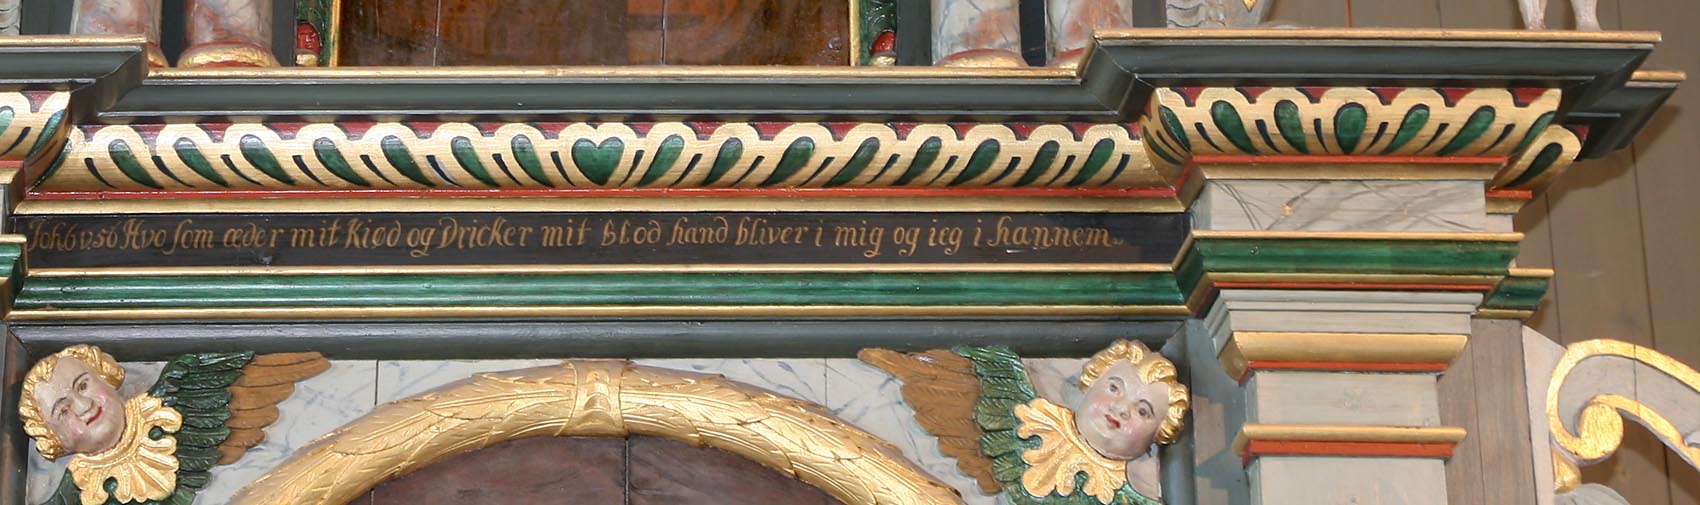 Joh 6 v: 56 Hvo som æder mit Kiød og Dricker mit Blod hand bliver i mig og ieg i hannem.